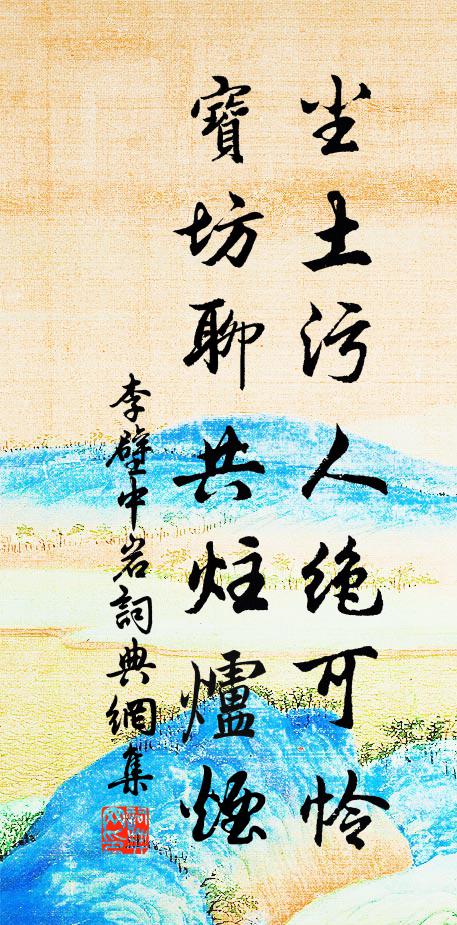 尘土污人绝可怜
寶坊聊共炷爐煙
李壁中岩詞典網集